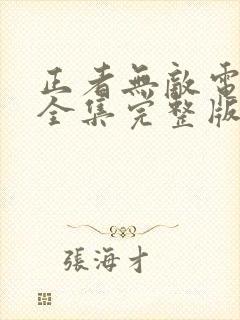 正者無敵電
全集完整版
張海才